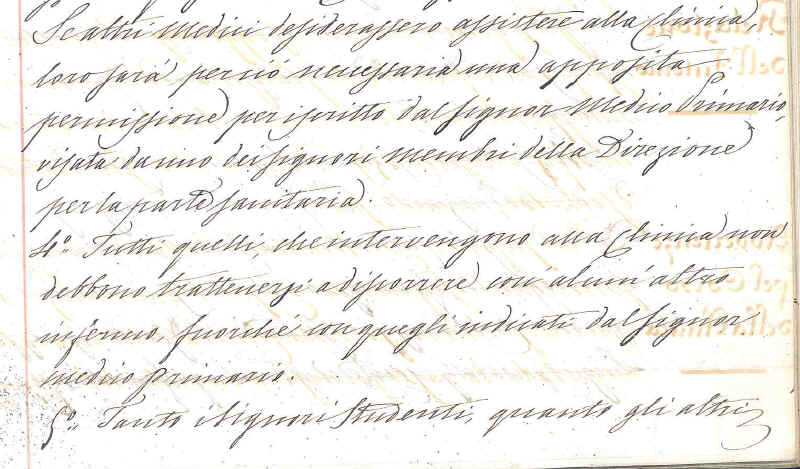 Se altri medici desiderassero assistere alla Clinica,
loro sarà perciò necessaria una apposita
permissione per iscritto dal signor Medico Primario,
visata da uno dei signori membri della Direzione
per la parte sanitaria.
4.° Tutti quelli, che intervengono alla Clinica non
debbono trattenersi a discorrere con alcun' altro
infermo, fuorché con quegli indicati dal signor
medico primario.
5.° Tanto i Signori Studenti, quanto gli altri